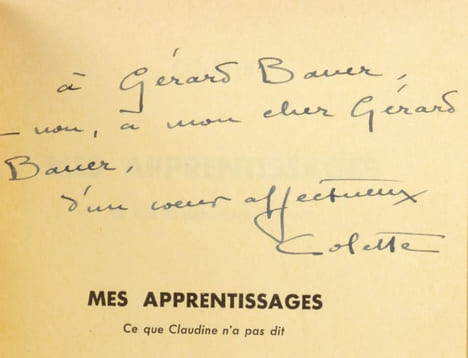 à Gérard Bauer,
– non, à mon cher Gérard
Bauer,
d'un coeur affectueux
Colette
MES APPRENTISSAGES
Ce que Claudine n'a pas dit